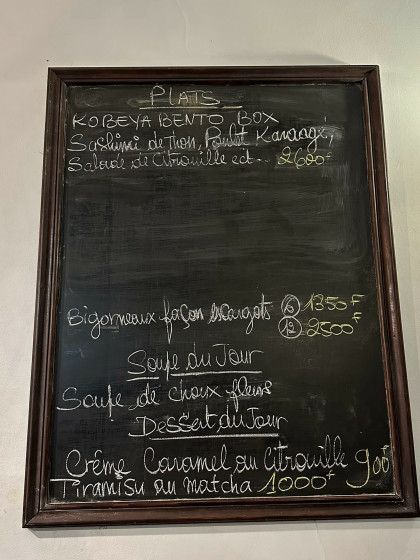 PLATS
KOBEYA BENTO BOX
Sashimi de Thon, Poulet Karaagé,
Salade de Citrouille ect... 2600F
Bigorneaux façon escargots ⑥ 1350F
⑫ 2500F
Soupe du Jour
Soupe de choux fleurs
Dessert du Jour
Créme Caramel au Citrouille 900F
Tiramisu au matcha 1000F